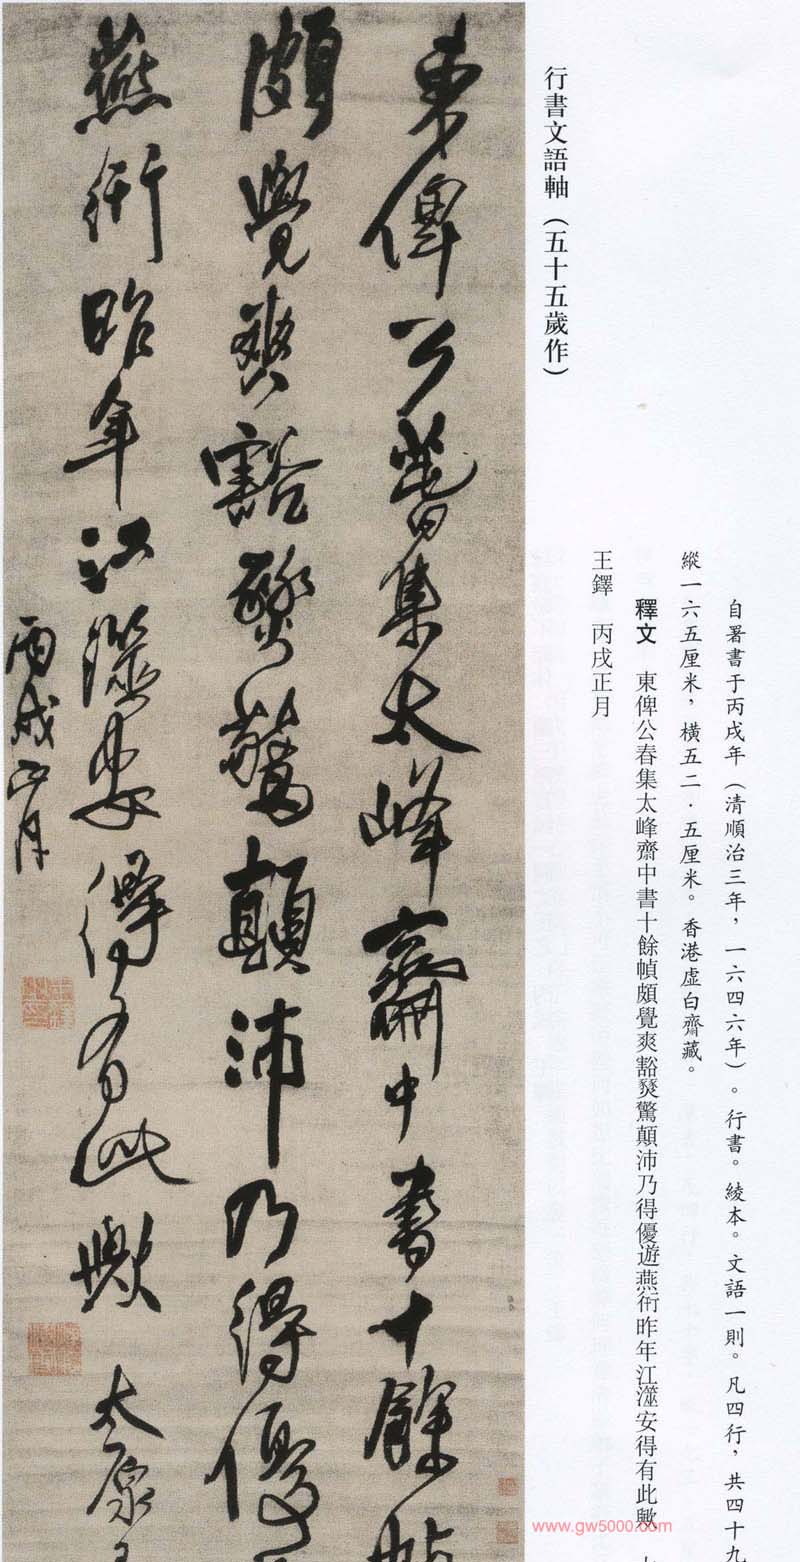 行書文語軸（五十五歲作）
自署書于丙戌年（清順治三年，一六四六年）。行書。綾本。文語一則。凡四行，共四十九
縱一六五厘米，橫五二·五厘米。香港虛白齋藏。
釋文　東俾公春集太峰齋中書十餘幀頗覺爽豁燹驚顛沛乃得優遊燕衎昨年江澨安得有此歟
王鐸　丙戌正月
東俾公春集太峰齋中書十餘幀
頗覺爽豁燹驚顛沛乃得優
燕衎昨年江澨安得有此歟 太原王
丙戌正月
www.gw5000.com